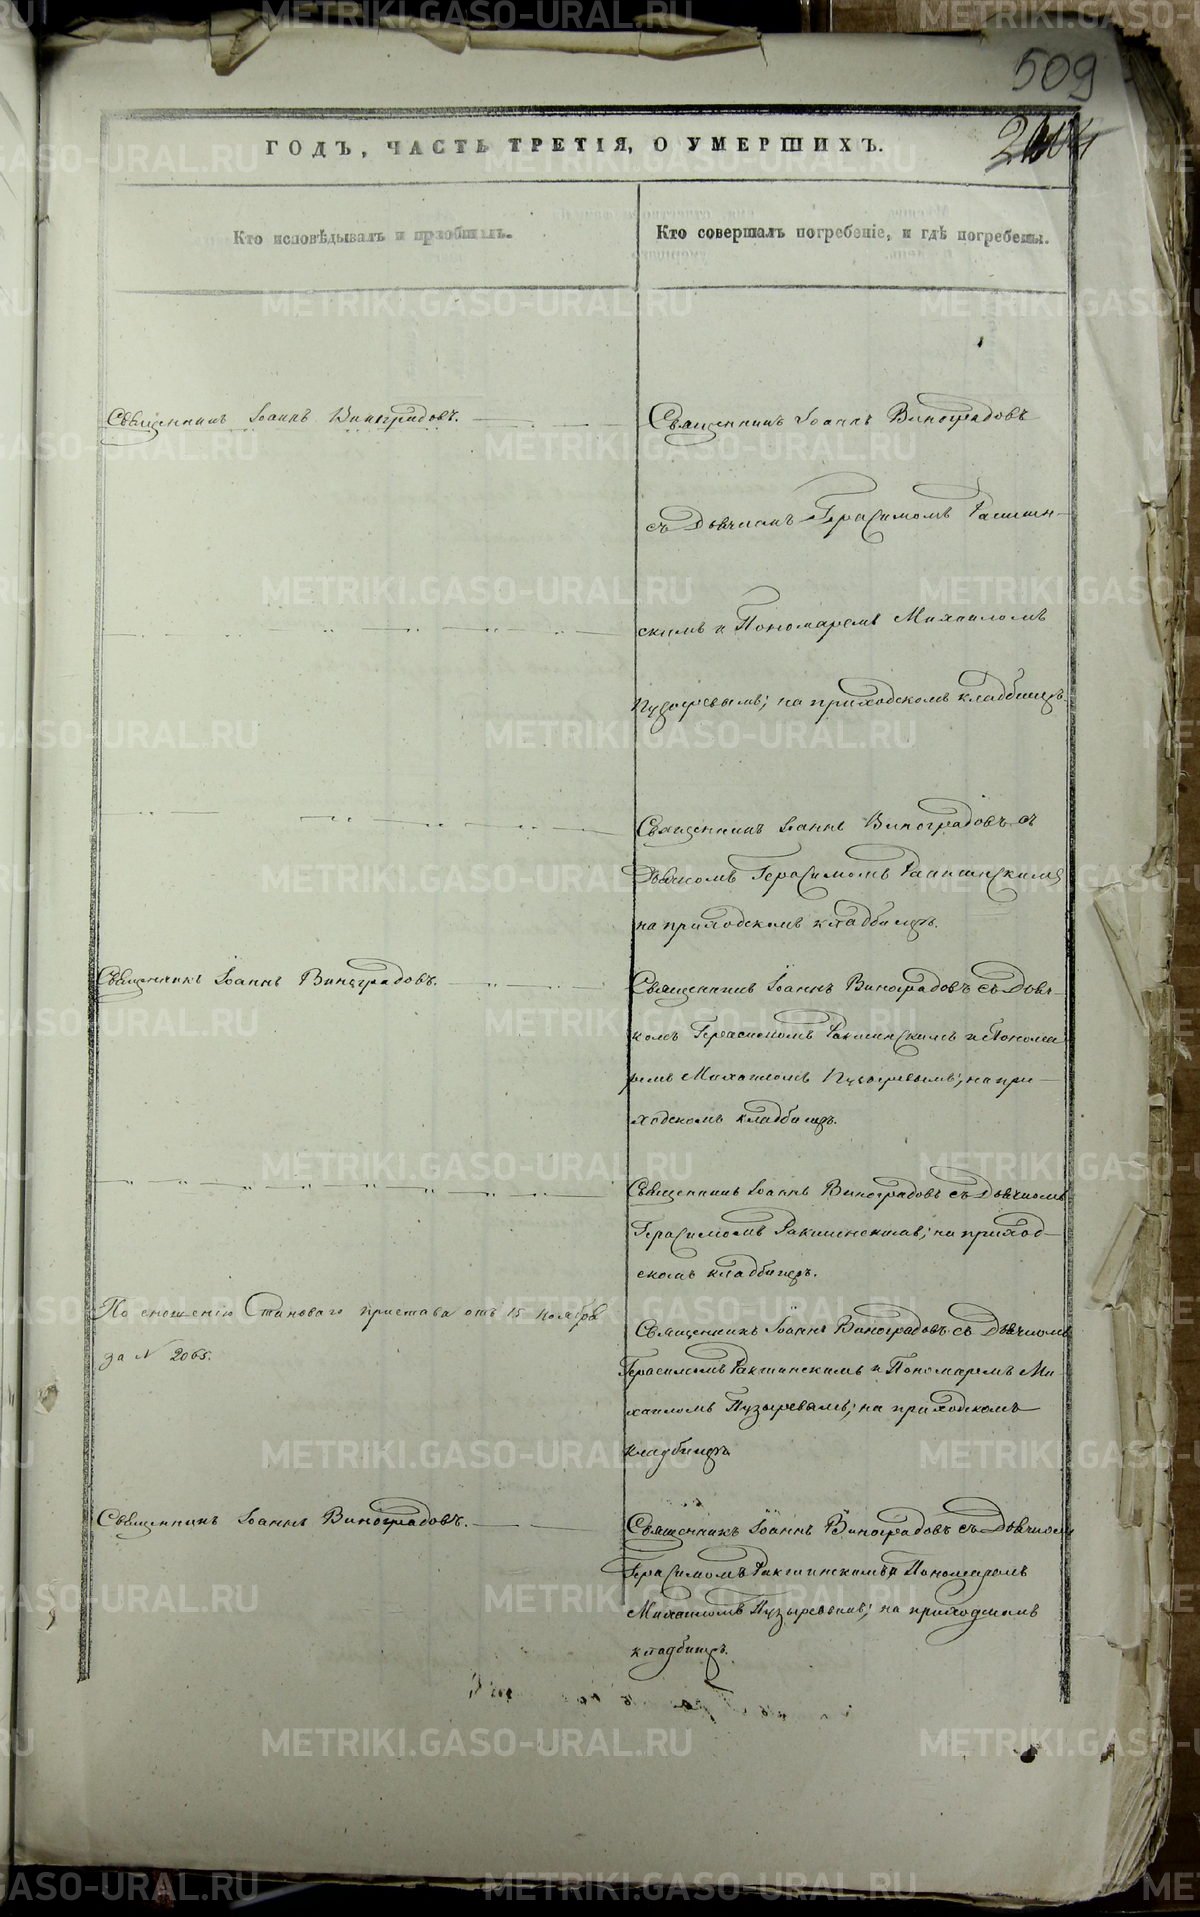 509
ГОДЪ, ЧАСТЬ ТРЕТІЯ, О УМЕРШИХЪ.
Кто исповѣдывалъ и пріобщалъ.
Кто совершалъ погребеніе, и гдѣ погребены.
Священникъ Іоаннъ Виноградовъ.
Священникъ Іоаннъ Виноградовъ
съ Дьячкомъ Герасимомъ Ракшин-
скимъ и Пономаремъ Михаиломъ
Пузыревымъ; на приходскомъ кладбищѣ.
Священникъ Іоаннъ Виноградовъ съ
Дьячкомъ Герасимомъ Ракшинскимъ
на приходскомъ кладбищѣ.
Священникъ Іоаннъ Виноградовъ.
Священникъ Іоаннъ Виноградовъ съ Дьяч-
комъ Герасимомъ Ракшинскимъ и Понома
ремъ Михаиломъ Пузыревымъ; на при-
ходскомъ кладбищѣ.
Священникъ Іоаннъ Виноградовъ съ Дьячкомъ
Герасимомъ Ракшинскимъ; на приход-
скомъ кладбищѣ.
По сношенію Становаго пристава отъ 15 Ноября
за № 2065.
Священникъ Іоаннъ Виноградовъ съ Дьячкомъ
Герасимомъ Ракшинскимъ и Пономаремъ Ми
хаиломъ Пузыревымъ; на приходскомъ
кладбищѣ
Священникъ Іоаннъ Виноградовъ.
Священникъ Іоаннъ Виноградовъ съ Дьячкомъ
Герасимомъ Ракшинскимъ и Пономаремъ
Михаиломъ Пузыревымъ; на приходскомъ
кладбищѣ.
METRIKI.GASO-URAL.RU